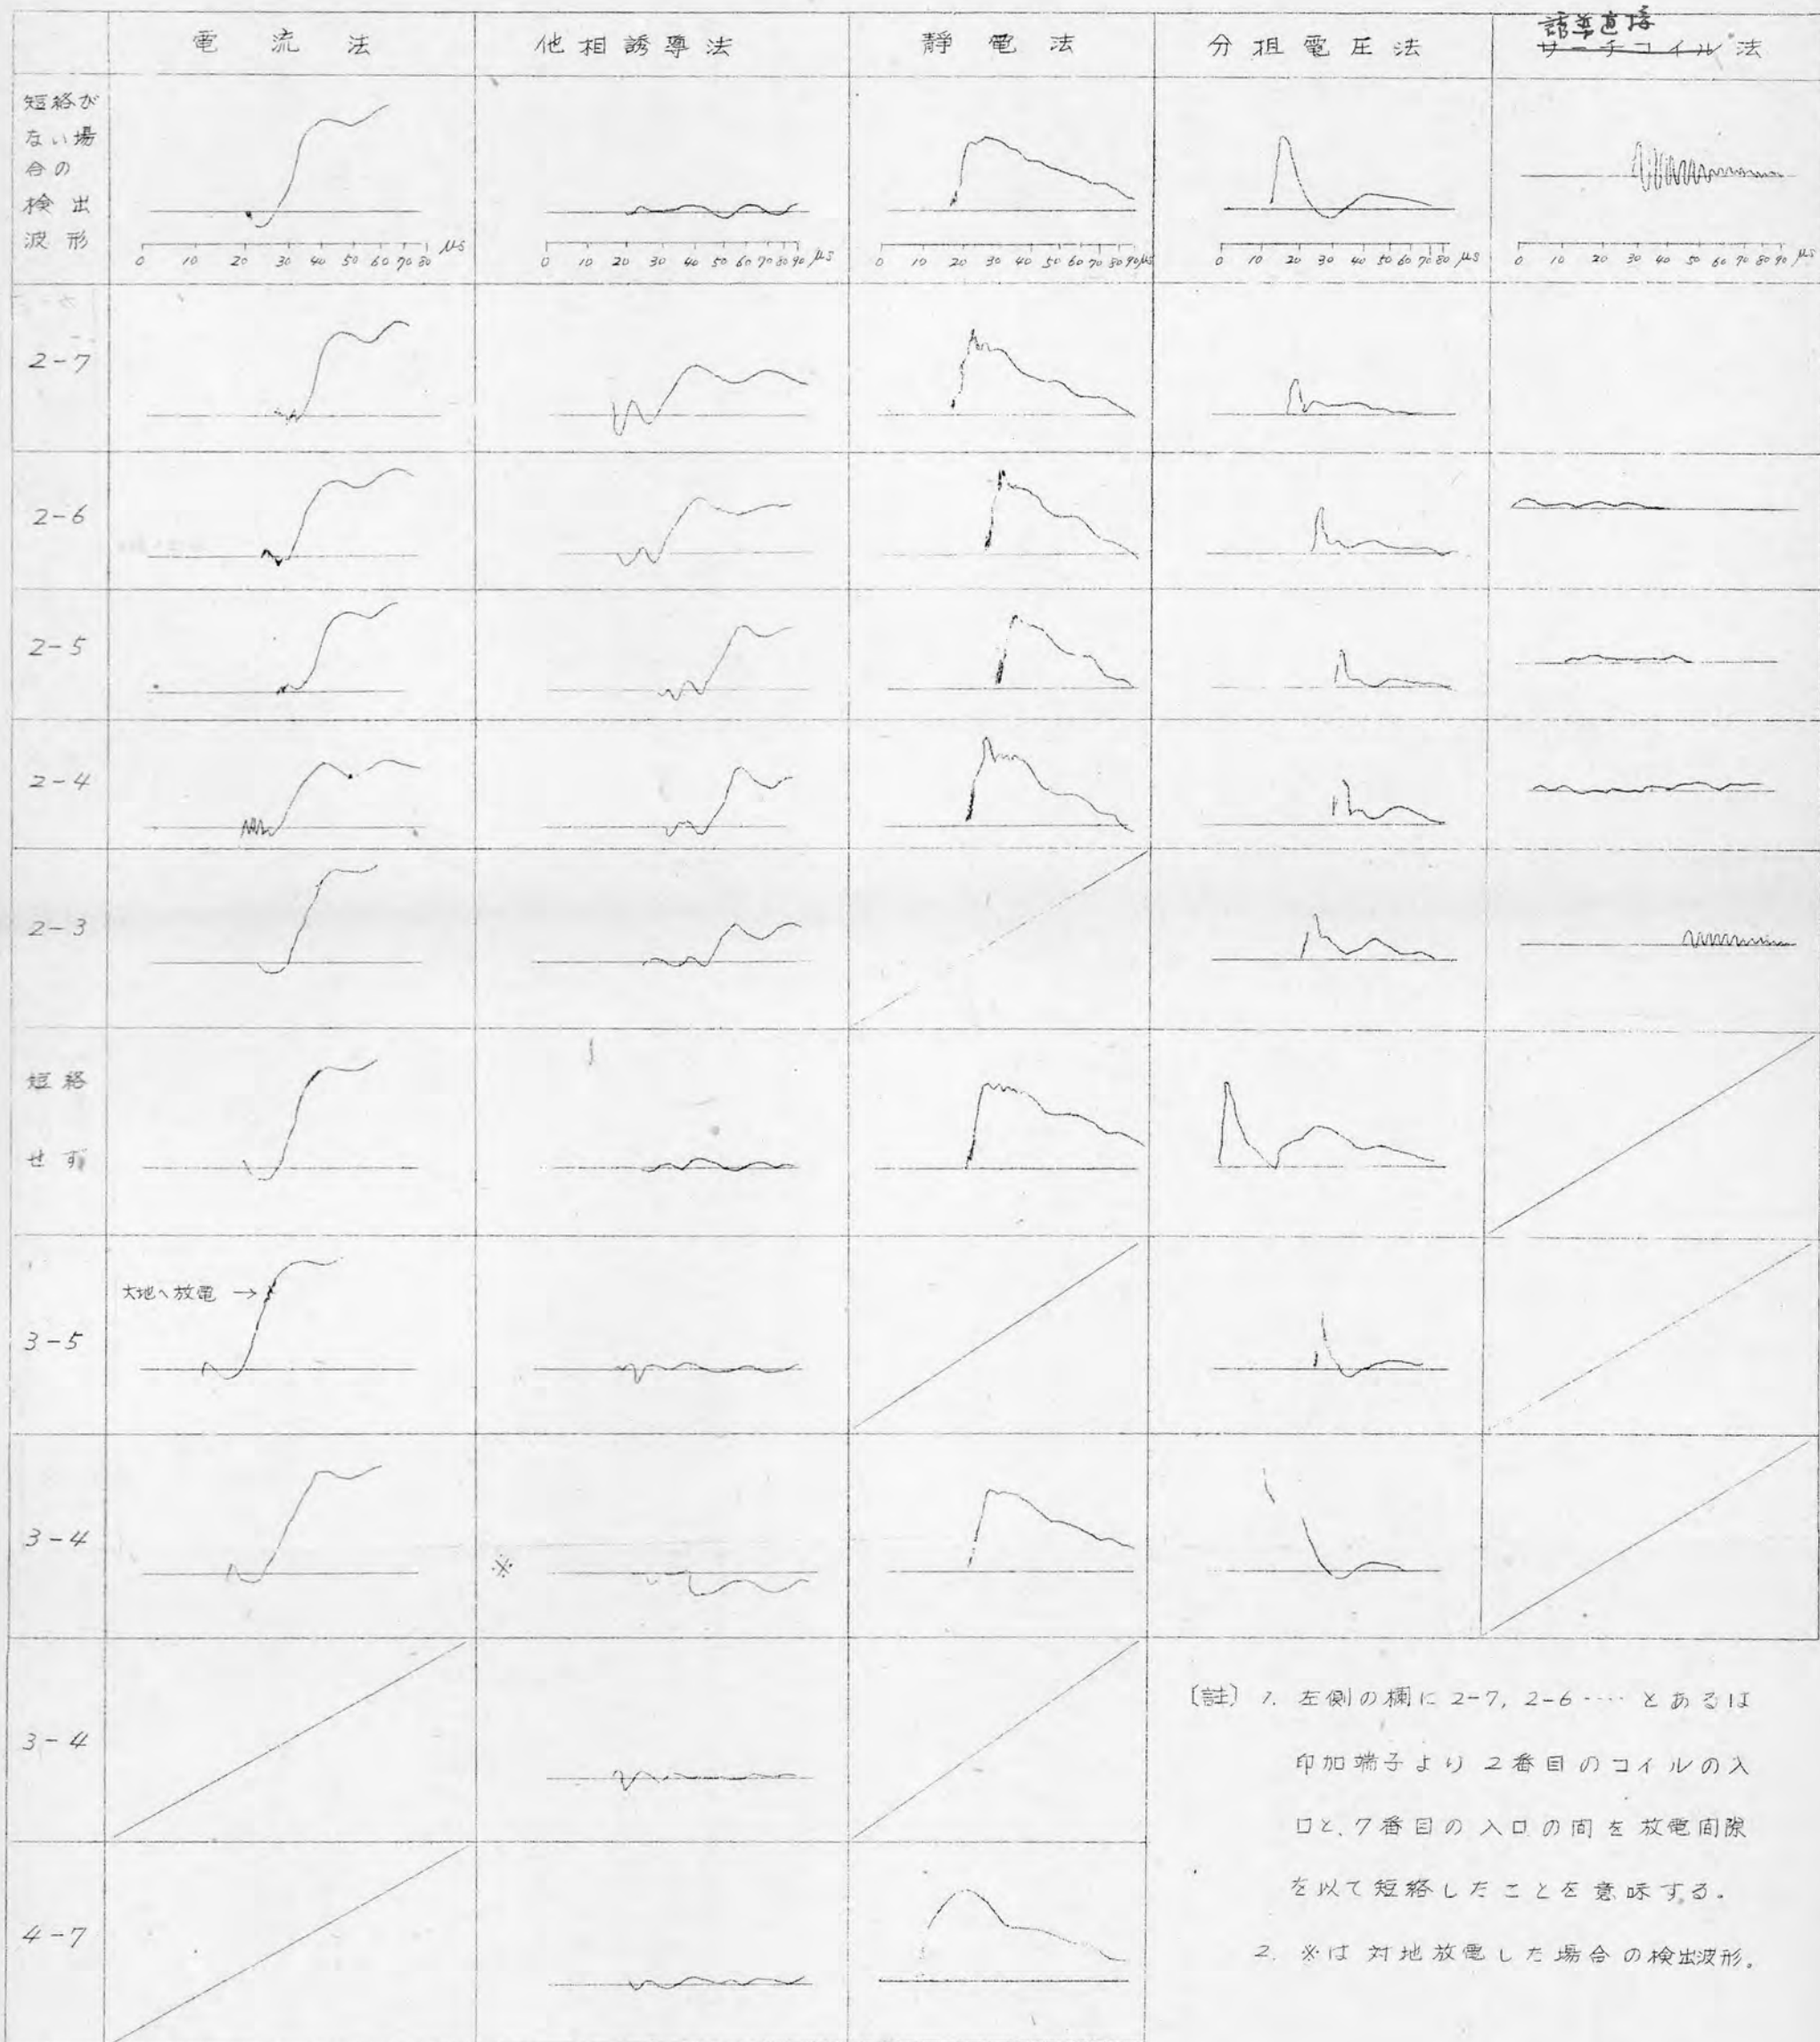 電流法 他相誘導法 靜電法 分担電圧法 誘導直接 サーチコイル法
短絡が
ない場
合の
検出
波形
0 10 20 30 40 50 60 70 80 μs
0 10 20 30 40 50 60 70 80 90 μs
0 10 20 30 40 50 60 70 80 90 μs
0 10 20 30 40 50 60 70 80 μs
0 10 20 30 40 50 60 70 80 90 μs
2-7
2-6
2-5
2-4
2-3
短絡
せず
大地へ放電 →
3-5
3-4
※
3-4
4-7
〔註〕 1. 左側の欄に 2-7, 2-6 ‥‥ とあるは
印加端子より 2番目のコイルの入
口と、7番目の入口の間を放電間隙
を以て短絡したことを意味する.
2. ※は対地放電した場合の検出波形.